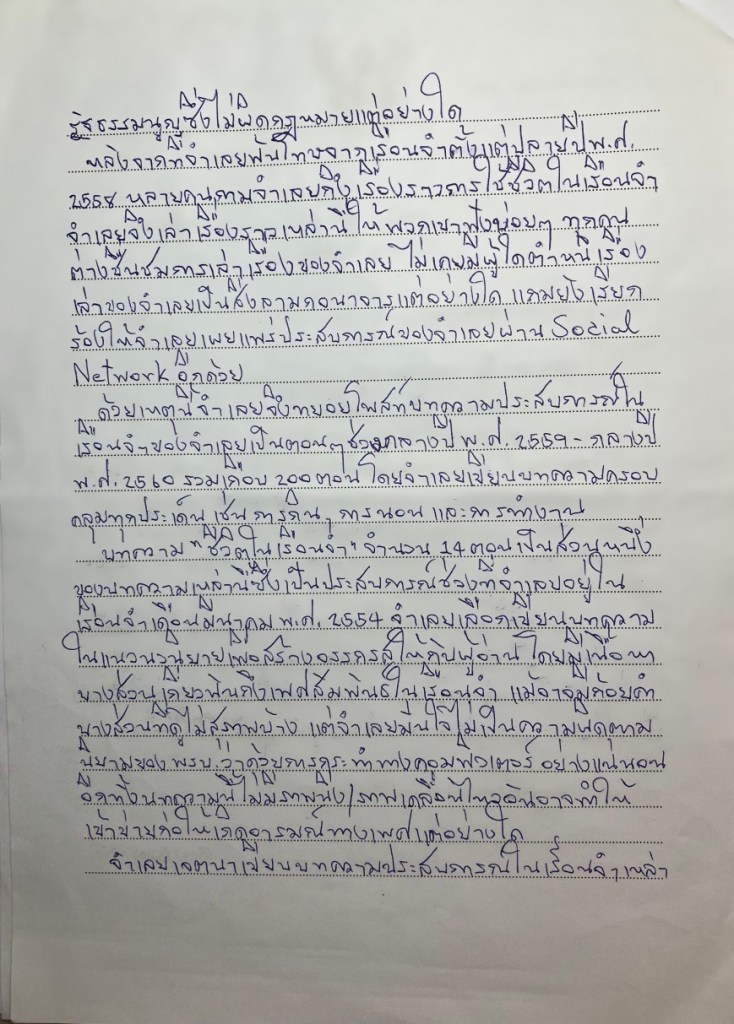 รัฐธรรมนูญซึ่งไม่ผิดกฎหมายแต่อย่างใด
หลังจากที่จำเลยพ้นโทษจากเรือนจำตั้งแต่ปลายปีพ.ศ.
2558 หลายคนถามจำเลยถึงเรื่องราวการใช้ชีวิตในเรือนจำ
จำเลยจึงเล่าเรื่องราวเหล่านี้ให้พวกเขาฟังบ่อยๆ ทุกคน
ต่างชื่นชมการเล่าเรื่องของจำเลย ไม่เคยมีผู้ใดตำหนิเรื่อง
เล่าของจำเลยเป็นสิ่งลามกอนาจารแต่อย่างใด แถมยังเรียก
ร้องให้จำเลยเผยแพร่ประสบการณ์ของจำเลยผ่าน Social
Network อีกด้วย
ด้วยเหตุนี้จำเลยจึงทยอยโพสท์บทความประสบการณ์ใน
เรือนจำของจำเลยเป็นตอนๆช่วงกลางปี พ.ศ. 2559 - กลางปี
พ.ศ. 2560 รวมเกือบ 200 ตอน โดยจำเลยเขียนบทความครอบ
คลุมทุกประเด็น เช่น การกิน, การนอน และการทำงาน
บทความ "ชีวิตในเรือนจำ" จำนวน 14 ตอนเป็นส่วนหนึ่ง
ของบทความเหล่านี้ซึ่งเป็นประสบการณ์ช่วงที่จำเลยอยู่ใน
เรือนจำเดือนมีนาคม พ.ศ. 2554 จำเลยเลือกเขียนบทความ
ในแนวนวนิยายเพื่อสร้างอรรถรสให้กับผู้อ่าน โดยมีเนื้อหา
บางส่วนเกี่ยวพันถึงเพศสัมพันธ์ในเรือนจำ แม้อาจมีถ้อยคำ
บางส่วนที่ดูไม่สุภาพบ้าง แต่จำเลยมั่นใจไม่เป็นความผิดตาม
นิยามของ พรบ.ว่าด้วยการกระทำทางคอมพิวเตอร์ อย่างแน่นอน
อีกทั้งบทความนี้ไม่มีภาพนิ่ง/ภาพเคลื่อนไหวอันอาจทำให้
เข้าข่ายก่อให้เกิดอารมณ์ทางเพศแต่อย่างใด
จำเลยเจตนาเขียนบทความประสบการณ์ในเรือนจำเหล่า